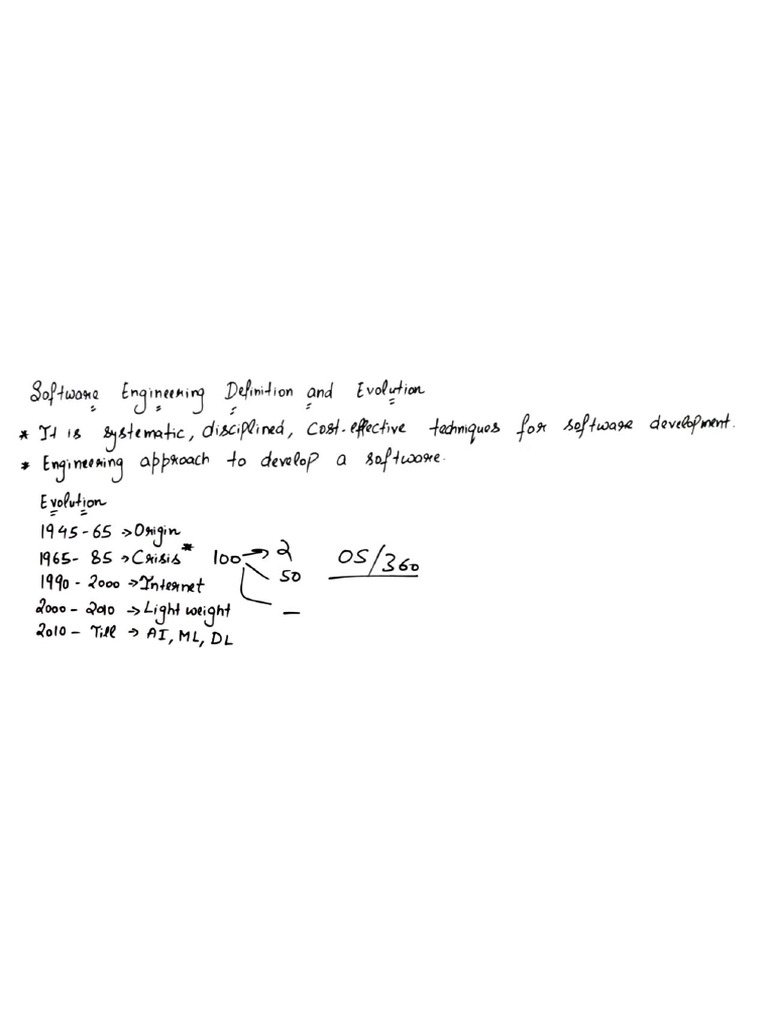 Software Engineering Definition and Evolution
* It is systematic, disciplined, cost-effective techniques for software development.
* Engineering approach to develop a software.
Evolution
1945-65 → Origin
1965-85 → Crisis* 100 → 2 OS/360
50
1990-2000 → Internet
2000-2010 → Light weight
—
2010-Till → AI, ML, DL